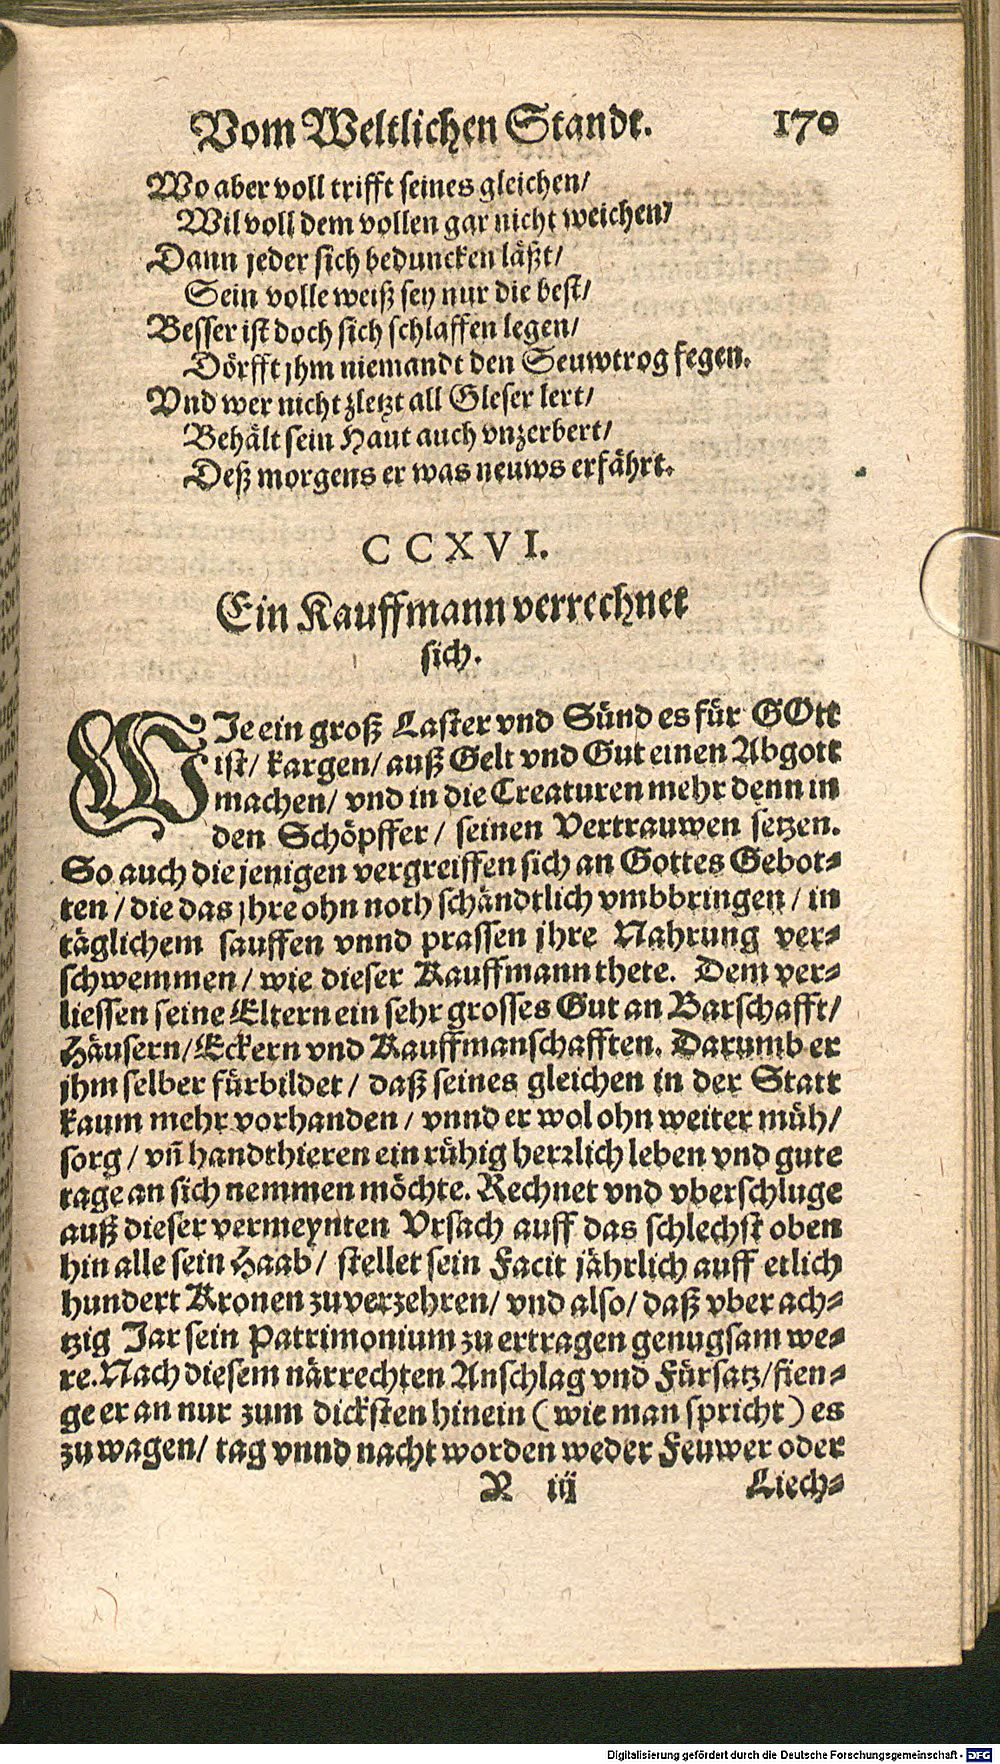 Vom Weltlichen Standt. 170
Wo aber voll trifft seines gleichen/
Wil voll dem vollen gar nicht weichen/
Dann jeder sich beduncken läßt/
Sein volle weiß sey nur die best/
Besser ist doch sich schlaffen legen/
Dörfft jhm niemandt den Seuwtrog fegen.
Vnd wer nicht zletzt all Gleser lert/
Behält sein Haut auch vnzerbert/
Deß morgens er was neuws erfährt.
CCXVI.
Ein Kauffmann verrechnet
sich.
WJe ein groß Laster vnd Sünd es für GOtt
ist/ kargen/ auß Gelt vnd Gut einen Abgott
machen/ vnd in die Creaturen mehr denn in
den Schöpffer/ seinen Vertrauwen setzen.
So auch die jenigen vergreiffen sich an Gottes Gebot-
ten/ die das jhre ohn noth schändtlich vmbbringen/ in
täglichem sauffen vnnd prassen jhre Nahrung ver-
schwemmen/ wie dieser Kauffmann thete. Dem ver-
liessen seine Eltern ein sehr grosses Gut an Barschafft/
Häusern/ Eckern vnd Kauffmanschafften. Darumb er
jhm selber fürbildet/ daß seines gleichen in der Statt
kaum mehr vorhanden/ vnnd er wol ohn weiter müh/
sorg/ vñ handthieren ein rühig herꝛlich leben vnd gute
tage an sich nemmen möchte. Rechnet vnd vberschluge
auß dieser vermeynten Vrsach auff das schlechst oben
hin alle sein Haab/ stellet sein Facit jährlich auff etlich
hundert Kronen zuverzehren/ vnd also/ daß vber ach-
tzig Jar sein Patrimonium zu ertragen genugsam we-
re. Nach diesem närrechten Anschlag vnd Fürsatz/ fien-
ge er an nur zum dicksten hinein (wie man spricht) es
zu wagen/ tag vnnd nacht worden weder Feuwer oder
R iij Liech-
Digitalisierung gefördert durch die Deutsche Forschungsgemeinschaft - DFG